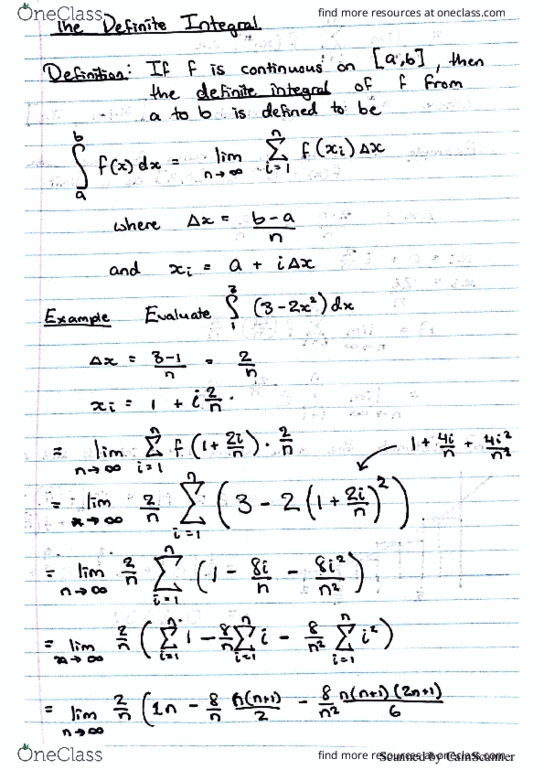 OneClass find more resources at oneclass.com
The Definite Integral
Definition: If f is continuous on [a,b], then
the definite integral of f from
a to b is defined to be
∫_a^b f(x) dx = lim_{n→∞} Σ_{i=1}^n f(x_i) Δx
where Δx = (b-a)/n
and x_i = a + iΔx
Example Evaluate ∫_1^3 (3-2x²) dx
Δx = (3-1)/n = 2/n
x_i = 1 + i 2/n .
= lim_{n→∞} Σ_{i=1}^n f(1 + 2i/n) · 2/n 1 + 4i/n + 4i²/n²
= lim_{n→∞} 2/n Σ_{i=1}^n (3 - 2(1 + 2i/n)²)
= lim_{n→∞} 2/n Σ_{i=1}^n (1 - 8i/n - 8i²/n²)
= lim_{n→∞} 2/n (Σ_{i=1}^n 1 - 8/n Σ_{i=1}^n i - 8/n² Σ_{i=1}^n i²)
= lim_{n→∞} 2/n (1n - 8/n n(n+1)/2 - 8/n² n(n+1)(2n+1)/6
OneClass find more resources at oneclass.com
Scanned by CamScanner